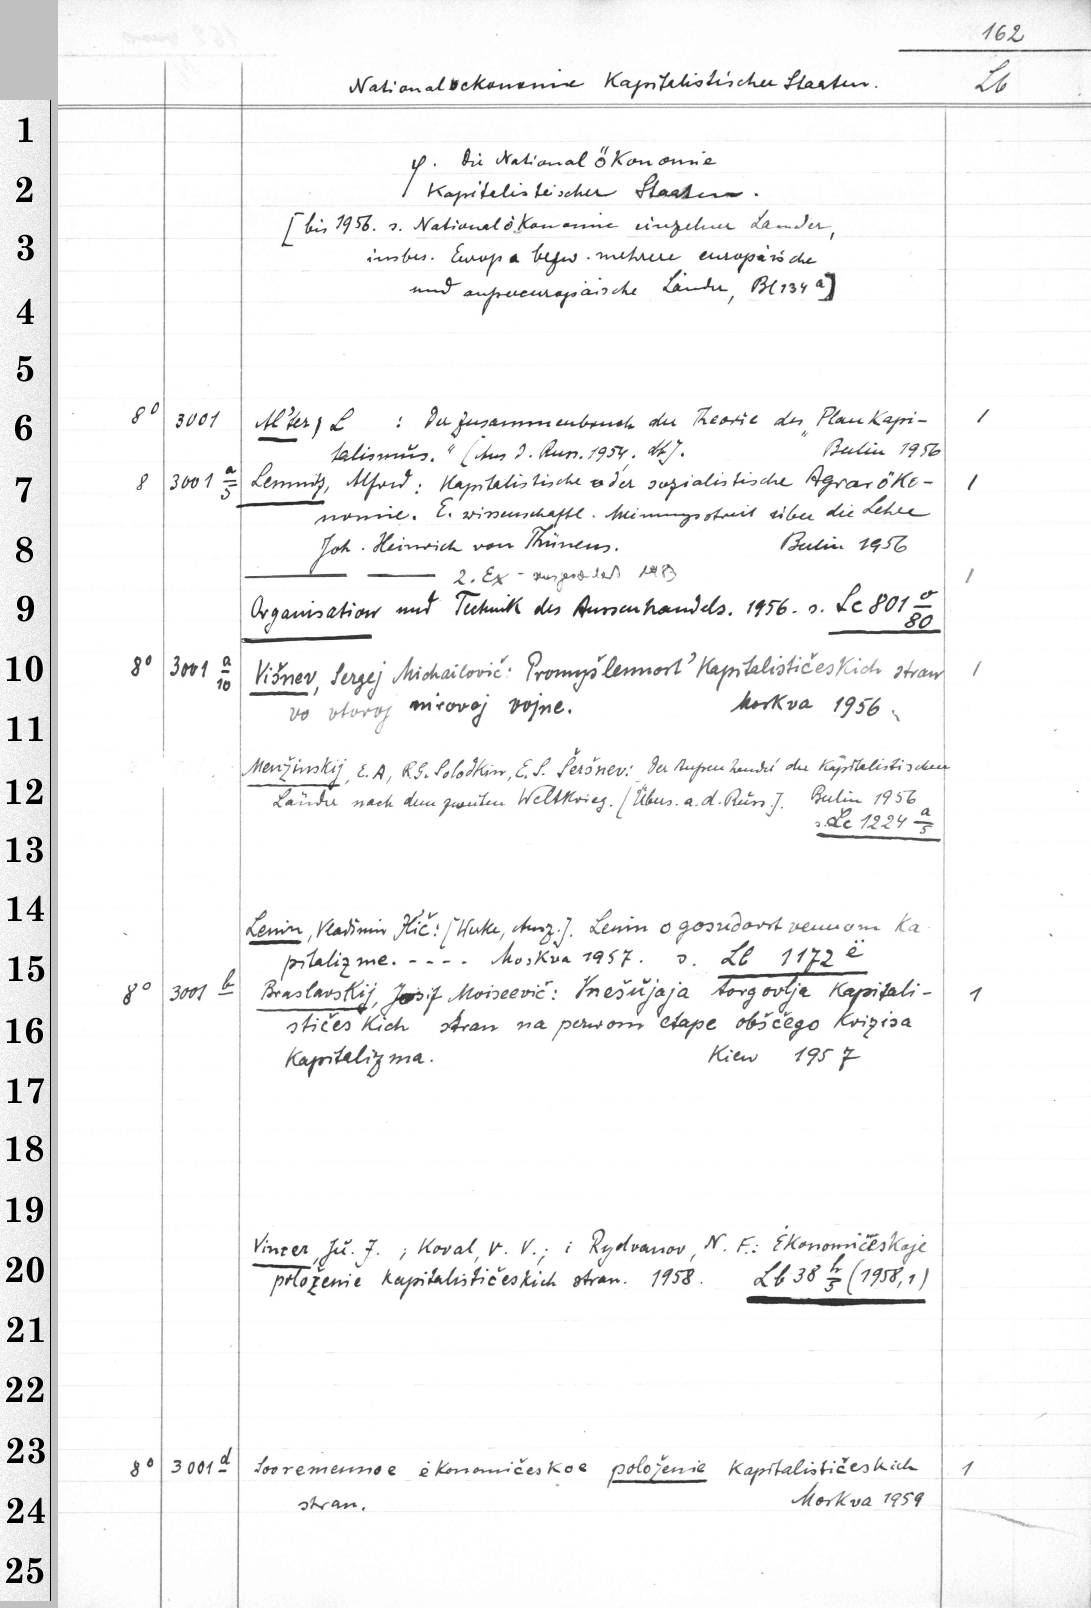 162
Nationaloekonomie Kapitalistischer Staaten. Lb
1
φ. Die NationalÖkonomie
2
Kapitalistischer Staaten.
[bis 1956. s. Nationalökonomie einzelner Länder,
3
insbes. Europa bezw. mehrere europäische
und außereuropäische Länder, Bl 134 a]
4
5
8° 3001 Al'ter, L : Der Zusammenbruch der Theorie des „Plankapi- 1
6
talismus." (Aus d. Russ. 1954. dt). Berlin 1956
8 3001 a/5 Lemnitz, Alfred: Kapitalistische oder sozialistische Agraröko- 1
7
nomie. E. wissenschaftl. Meinungsstreit über die Lehre
8
Joh. Heinrich von Thünens. Berlin 1956
2. Ex - 1
9
Organisation und Technik des Aussenhandels. 1956. s. Lc 801 o/80
10
8° 3001 a/10 Višnev, Sergej Michailovič: Promyšlennost' Kapitalističeskich stran 1
vo vtoroj mirovoj vojne. Moskva 1956
11
12
Menžinskij, E. A, R.G. Solodkin, E. S. Šeršnev: Der Aussenhandel der Kapitalistischen
Länder nach dem zweiten Weltkrieg. [Übers. a. d. Russ.]. Berlin 1956
s. Lc 1224 a/5
13
14
Lenin, Vladimir Il'ič: [Werke, Ausz.]. Lenin o gosudarstvennom Ka
15
pitalizme. - - - - Moskva 1957. s. Lb 1172 ë
8° 3001 b Braslavskij, Iosif Moiseevič: Vnešnjaja torgovlja Kapitali- 1
16
stičeskich stran na pervom etape obščego Krizisa
Kapitalizma. Kiev 1957
17
18
19
Vincer, Ju. J. ; Koval, V. V.; i Rydvanov, N. F.: Ėkonomičeskoje
20
položenie kapitalističeskich stran. 1958. Lb 38 h/5 (1958,1)
21
22
23
8° 3001 d Sovremennoe ėkonomičeskoe položenie Kapitalističeskich 1
24
stran. Moskva 1959
25